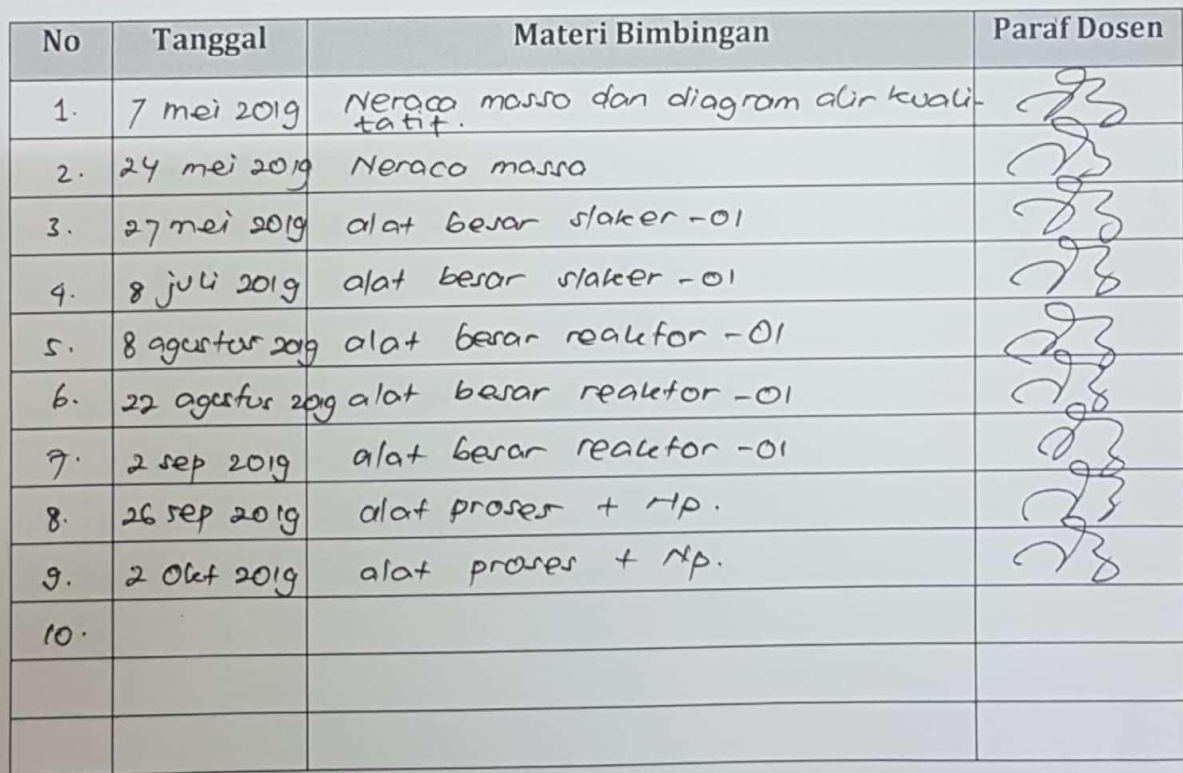 No Tanggal Materi Bimbingan Paraf Dosen
1. 7 mei 2019 Neraca massa dan diagram alir kuali-
tatif.
2. 24 mei 2019 Neraca massa
3. 27 mei 2019 alat besar slaker -01
4. 8 juli 2019 alat besar slaker -01
5. 8 agustus 2019 alat besar reaktor -01
6. 22 agustus 2019 alat besar reaktor -01
7. 2 sep 2019 alat besar reaktor -01
8. 26 sep 2019 alat proses +
9. 2 Okt 2019 alat proses + Np.
10.